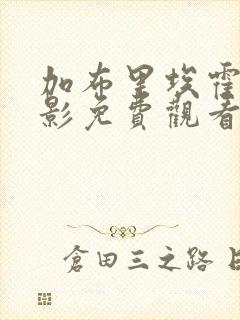 加布里埃
影免費觀看
倉田三之路